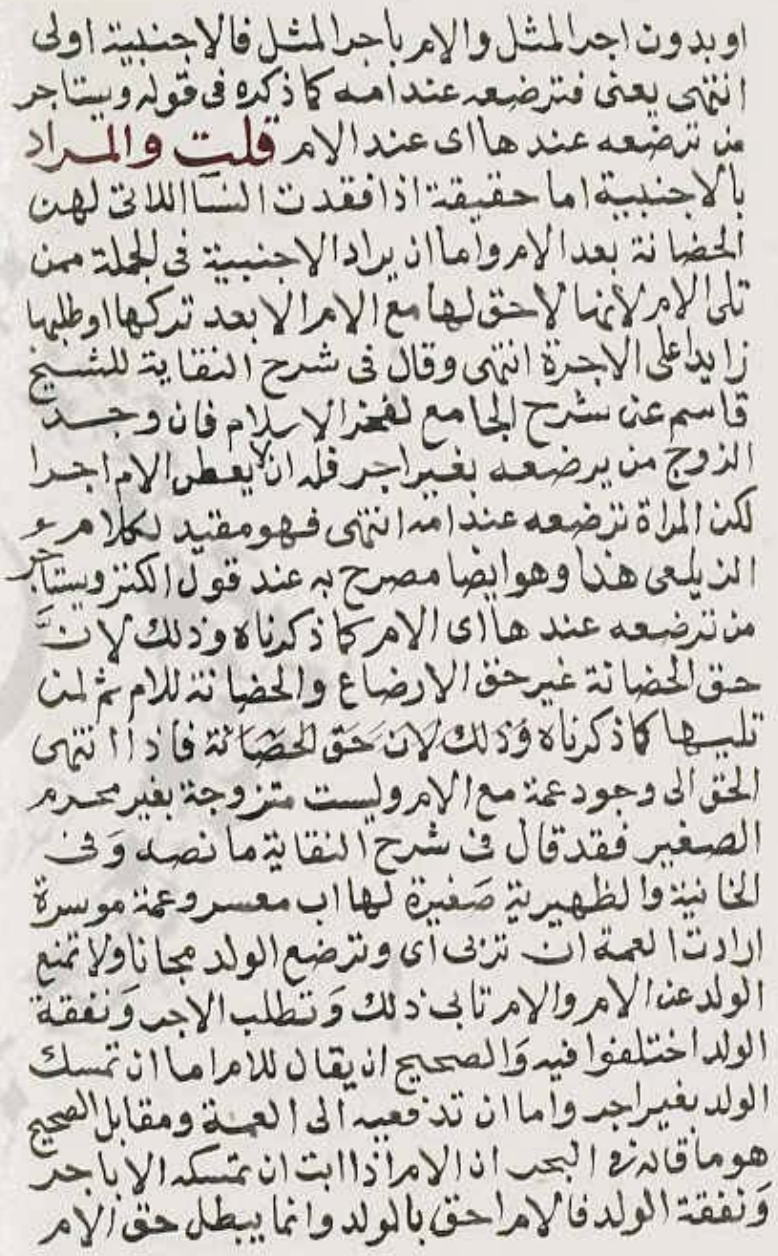 او بدون اجر المثل والام باجر المثل فالاجنبية اولى
انتهى يعنى فترضعه عند امه كما ذكره فى قوله ويستاجر
من ترضعه عندها اى عند الام قلت والمراد
بالاجنبية اما حقيقة اذا فقدت النسا اللاتى لهن
الحضانة بعد الام واما ان يراد الاجنبية فى الجملة ممن
تلى الام لانها لا حق لها مع الام الا بعد تركها او طلبها
زايدا على الاجرة انتهى وقال فى شرح النقاية للشيخ
قاسم عن شرح الجامع لفخر الاسلام فان وجد
الزوج من يرضعه بغير اجر فله ان لا يعطى الام اجرا
لكن المراة ترضعه عند امه انتهى فهو مقيد لكلام
الزيلعى هذا وهو ايضا مصرح به عند قول الكنز ويستاجر
من ترضعه عندها اى الام كما ذكرناه وذلك لانَّ
حق الحضانة غير حق الارضاع والحضانة للام ثم لمن
تليها كما ذكرناه وَذلك لان حَق الحضَانة فاذا انتهى
الحق الى وجود عمة مع الام وليست متزوجة بغير محرم
الصغير فقد قال فى شرح النقاية ما نصه وَفى
الخانية والظهيرية صَغيرة لها اب معسر وعمة موسرة
ارادت العمة ان تربى اى وترضع الولد مجانا ولا تمنع
الولد عن الام والام تابى ذلك وَتطلب الاجر وَنفقة
الولد اختلفوا فيه وَالصحيح ان يقال للام اما ان تمسك
الولد بغير اجر واما ان تدفعيه الى العمة ومقابل الصحيح
هو ما قاله فى البحر ان الام اذا ابت ان تمسكه الا باجر
وَنفقة الولد فالام احق بالولد وانما يبطل حق الام